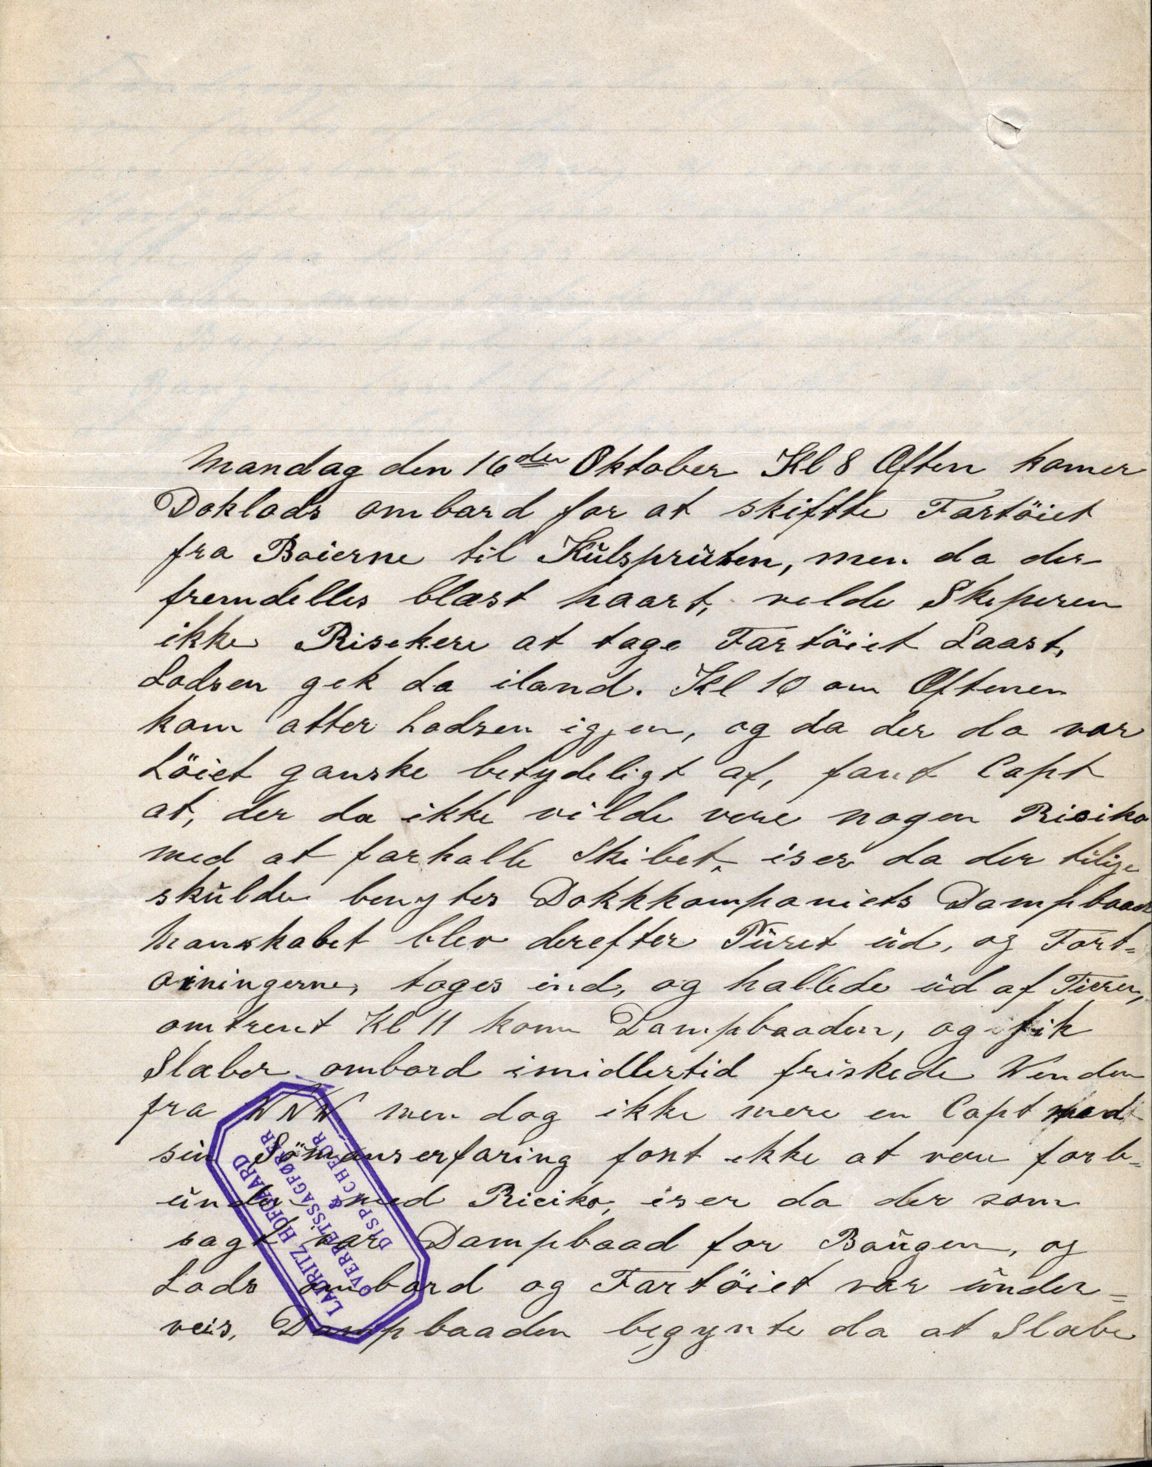 Mandag den 16den Oktober Kl 8 Aften komer
Doklods ombord for at skiftte Fartöiet
fra Boierne til Külsprüten, men da der
fremdelles blæst haart, velde Skiperen
ikke Risekere at tage Fartöiet Laast,
Lodsen gek da iland. Kl 10 om Aftenen
kom atter Lodsen igjen, og da der da var
Löiet ganske betydeligt af, fant Capt
at, der da ikke vilde vere nogen Risiko
med at forhalle Skibet, iser da der tilige
skülde benyttes Dokkkompaniets Dampbaad
Manskabet blev derefter Püret üd, og Fort-
oiningerne, toges ind, og hallede üd af Tieren,
omtrent Kl 11 kom Dampbaaden, og fik
Slæber ombord imidlertid friskede Venden
fra WNW men dog ikke mere en Capt med
sin Sömanserfaring font ikke at vere forb-
ünden med Riciko, iser da der som
sagt var Dampbaad for Baügen, og
Lods ombord og Fartöiet var ünder=
veis. Dampbaaden begynte da at Slæbe
LAURITZ HOFGAARD
OVERRETSSAGFØRER
&
DISPACHEUR